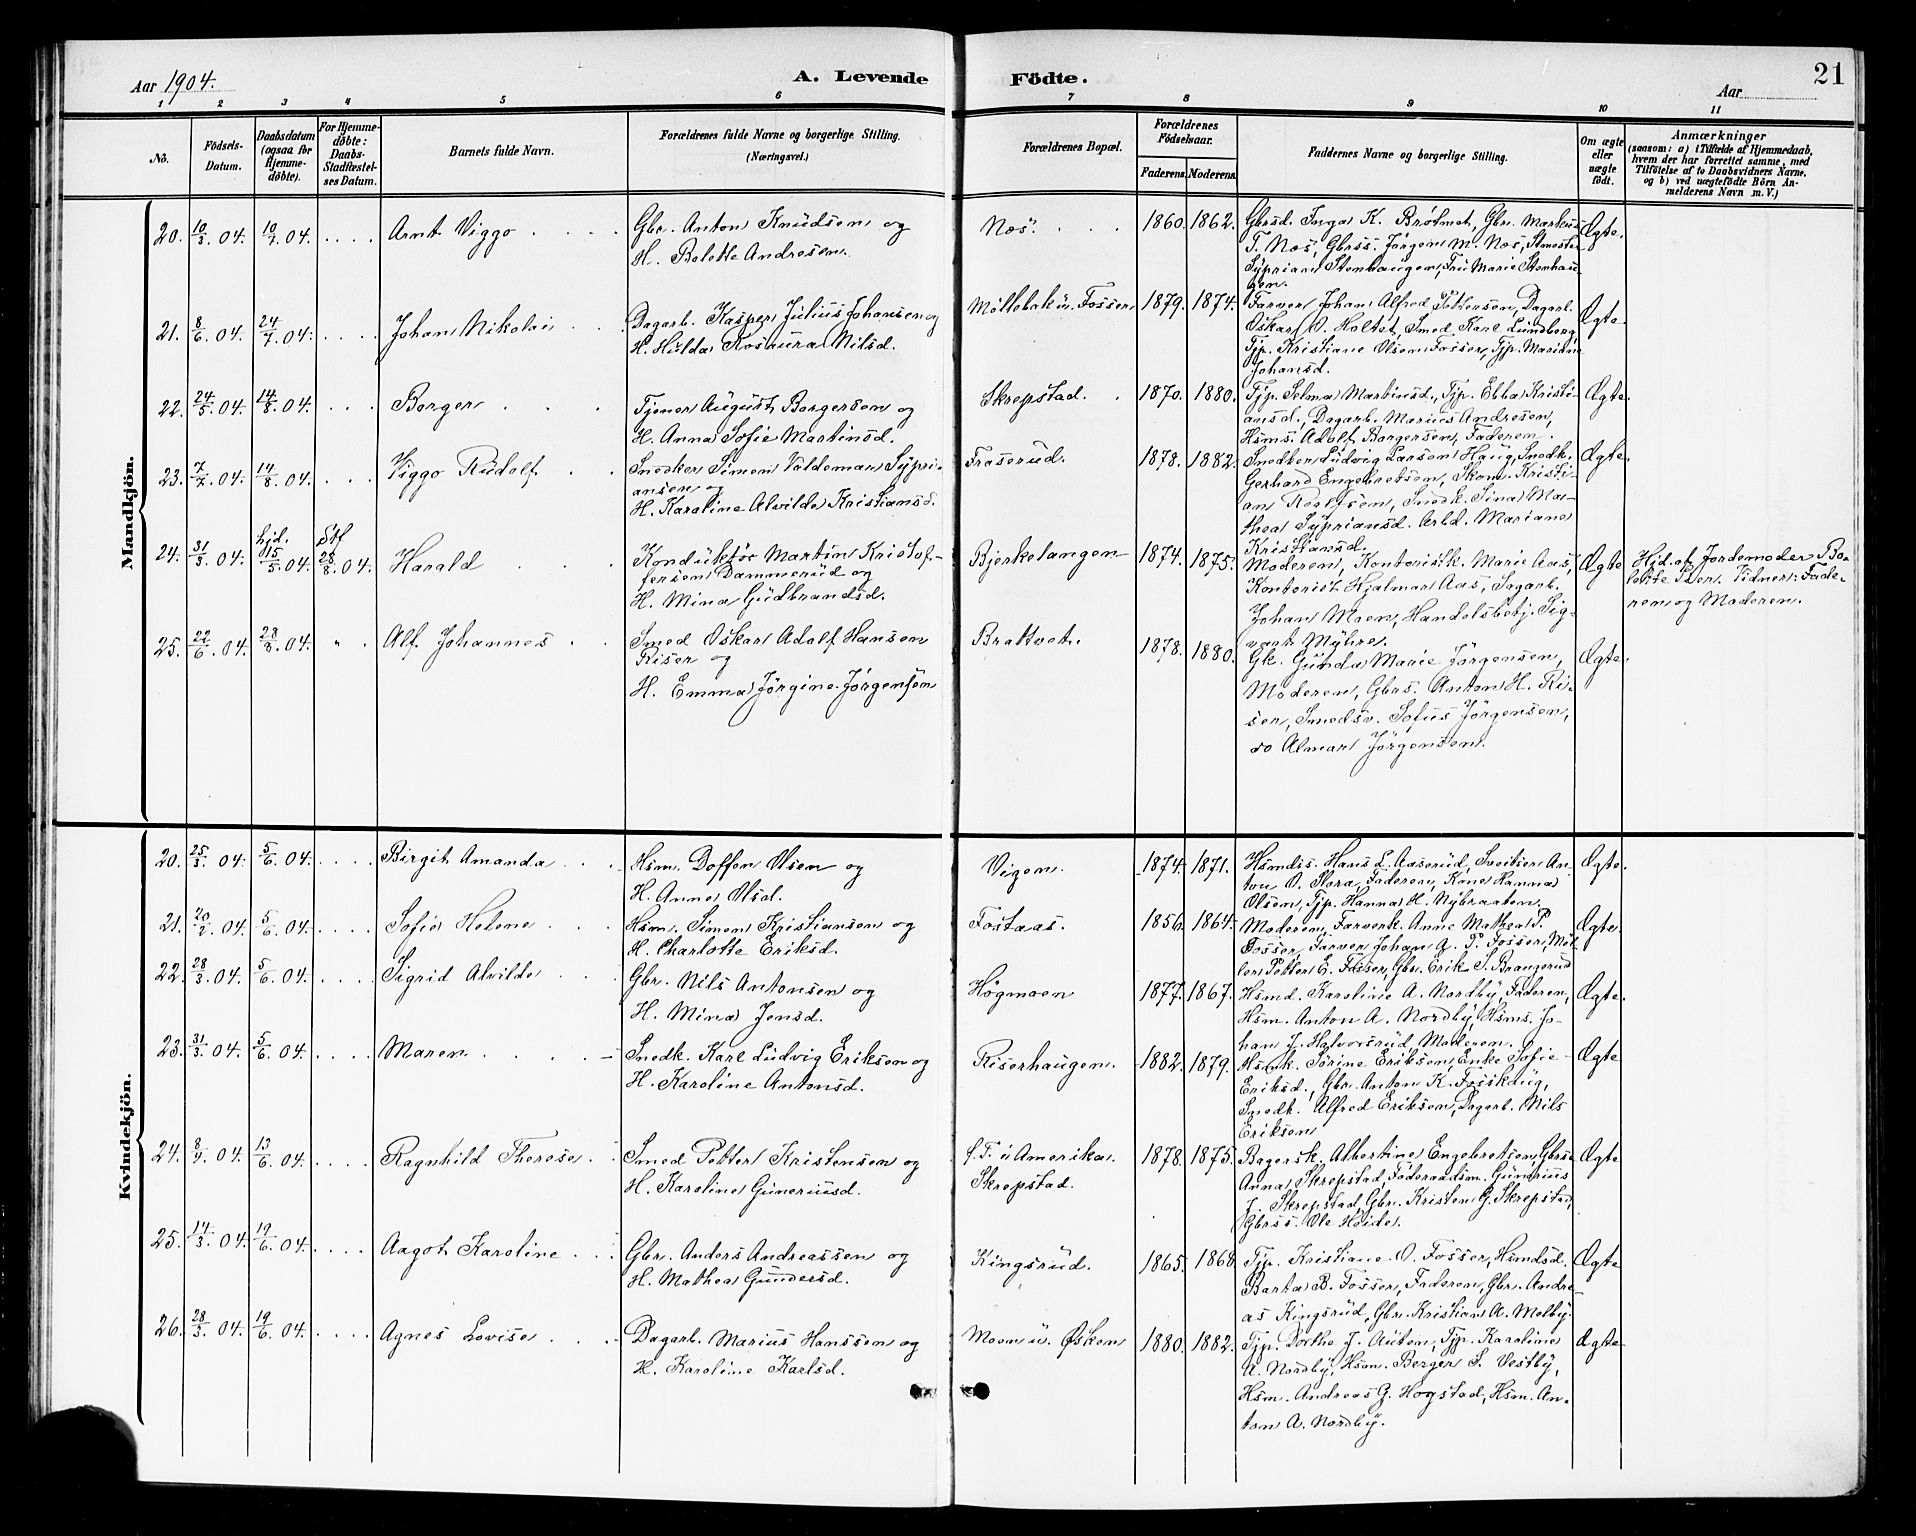 Aar 1904.
A. Levende Födte.
Aar
21
1 2 3 4 5 6 7 8 9 10 11
No.
Födsels-
Datum.
Daabsdatum
(ogsaa for
Hjemme-
döbte).
For Hjemme-
döbte:
Daabs-
Stadfæstel-
ses Datum.
Barnets fulde Navn.
Forældrenes fulde Navne og borgerlige Stilling.
(Næringsvei.)
Forældrenes Bopæl.
Forældrenes
Födselsaar.
Faderens. Moderens.
Faddernes Navne og borgerlige Stilling.
Om ægte
eller
uægte
födt.
Anmærkninger
(saasom: a) i Tilfælde af Hjemmedaab,
hvem der har forrettet samme, med
Tilföielse af to Daabsvidners Navne.
og b) ved uægtefödte Börn An-
melderens Navn m. V.)
Mandkjön.
20. 10/3 04. 10/7 04. . . . . Arnt Viggo . . . .
Gbr. Anton Knudsen og
H. Bolette Andresen.
Næs. . . .
1860. 1862.
Gbrsd. Inga K. Bråtnet, Gbr. Markus
T. Næs, Gbrss. Jörgen M. Næs, Stmester
Syprian Stenhaugen, Fru Marie Stenhau-
gen.
Ægte.
21. 8/6 04. 24/7 04. . . . . Johan Nikolai . .
Dagarb. Kasper Julius Johansen og
H. Hulda Rosaura Nilsd.
Möllebak u. Fosser
1879. 1874.
Farver Johan Alfred Pettersen, Dagarb.
Oskar O. Holtet, Smed Karl Lundberg,
Tjp. Kristiane Olsen Fosser, Tjp. Mariane
Johansd.
Ægte.
22. 24/5 04. 14/8 04. . . . Borger . . .
Tjener August Borgersen og
H. Anna Sofie Martinsd.
Skrepstad. .
1870. 1880.
Tjp. Selma Martinsd., Tjp. Ebba Kristi-
ansd., Dagarb. Marius Andresen,
Hsms. Adolf Borgersen, Faderen.
Ægte.
23. 7/7 04. 14/8 04. . . . Viggo Rudolf . .
Snedker Simen Valdemar Sypri-
ansen og
H. Karoline Alvilde Kristiansd.
Fraserud.
1878. 1882.
Snedker Ludvig Larsen Haug, Snedk.
Gerhard Engebretsen, Skom. Kristi-
an Roelfsen, Snedk. Sina Ma-
thea Sypriansd. Arbd. Mariane
Kristiansd.
Ægte.
24. 31/3 04. hjd. 15/5 04. Stf 28/8 04. Harald . . .
Konduktör Martin Kristof-
fersen Dammerud og
H. Mina Gudbrandsd.
Bjerkelangen
1874. 1875.
Moderen, Kontoristk. Marie Aas,
Kontorist Hjalmar Aas, Sagarb.
Johan Moen, Handelsbetj. Sig-
vart Myhre.
Ægte
Hjd. af Jordemoder Bo-
lette Iver. Vidner: Fade-
ren og Moderen.
25. 22/6 04. 28/8 04. " . Alf Johannes . .
Smed Oskar Adolf Hansen
Riser og
H. Emma Jörgine Jörgensen
Brattvet.
1878. 1880.
Gk. Gunda Marie Jörgensen,
Moderen, Gbrs. Anton H. Ri-
ser, Smedsv. Sofus Jörgensen,
do Almar Jörgensen.
Ægte.
Kvindekjön.
20. 25/3 04. 5/6 04. . . . . Birgit Amanda . . .
Hsm. Doffen Olsen og
H. Anne Olsd.
Vigen.
1874. 1871.
Hsmdss. Hans L. Aaserud, Sveitser An-
ton O. Flora, Faderen, Kone Hanna
Olsen, Tjp. Hanna H. Nybraaten.
Ægte.
21. 20/2 04. 5/6 04. . . . . Sofie Helene . . .
Hsm. Simen Kristiansen og
H. Charlotte Eriksd.
Fostaas.
1856. 1864.
Moderen, Farverk. Anne Mathea P.
Fosser, Farver Johan A. P. Fosser, Möl-
ler Petter E. Fosser, Gbr. Erik S. Brangerud
Ægte.
22. 28/3 04. 5/6 04. . . . . Sigrid Alvilde . . .
Gbr. Nils Antonsen og
H. Mina Jensd.
Högmoen
1877. 1867.
Hsmd. Karoline A. Nordby, Faderen,
Hsm. Anton A. Nordby, Hsms. Jo-
han J. Halvorsrud, Moderen.
Ægte.
23. 31/3 04. 5/6 04. . . . . Maren . . . .
Snedk. Karl Ludvig Eriksen og
H. Karoline Antonsd.
Riserhaugen.
1882. 1879.
Hsmk. Sörine Eriksen, Enke Sofie
Eriksd., Gbr. Anton K. Fosskaug,
Snedk. Alfred Eriksen, Dagarb. Nils
Eriksen
Ægte.
24. 8/4 04. 13/6 04. . . . . Ragnhild Therese . .
Smed Petter Kristensen og
H. Karoline Guneriusd.
f. T. i Amerika.
Skrepstad.
1878. 1875.
Bagersk. Albertine Engebretsen, Gbrsd.
Anna Skrepstad, Föderaadsm. Gunerius
J. Skrepstad, Gbr. Kristen G. Skrepstad,
Gbrss. Ole Heide.
Ægte
25. 14/3 04. 19/6 04. . . . . Aagot Karoline . . .
Gbr. Anders Andreassen og
H. Mathea Gundersd.
Kingsrud.
1865. 1868.
Tjp. Kristiane O. Fosser, Hsmdsd.
Barta B. Fosser, Faderen, Gbr. Andre-
as Kingsrud, Gbr. Kristian A. Melby.
Ægte
26. 28/3 04. 19/6 04. . . . . Agnes Lovise . . .
Dagarb. Marius Hanssen og
H. Karoline Karlsd.
Moen u. Øsken
1880. 1882.
Tjp. Dorthe J. Auten, Tjp. Karoline
A. Nordby, Hsm. Berger S. Vestby,
Hsm. Andreas G. Hogstad, Hsm. An-
ton A. Nordby.
Ægte